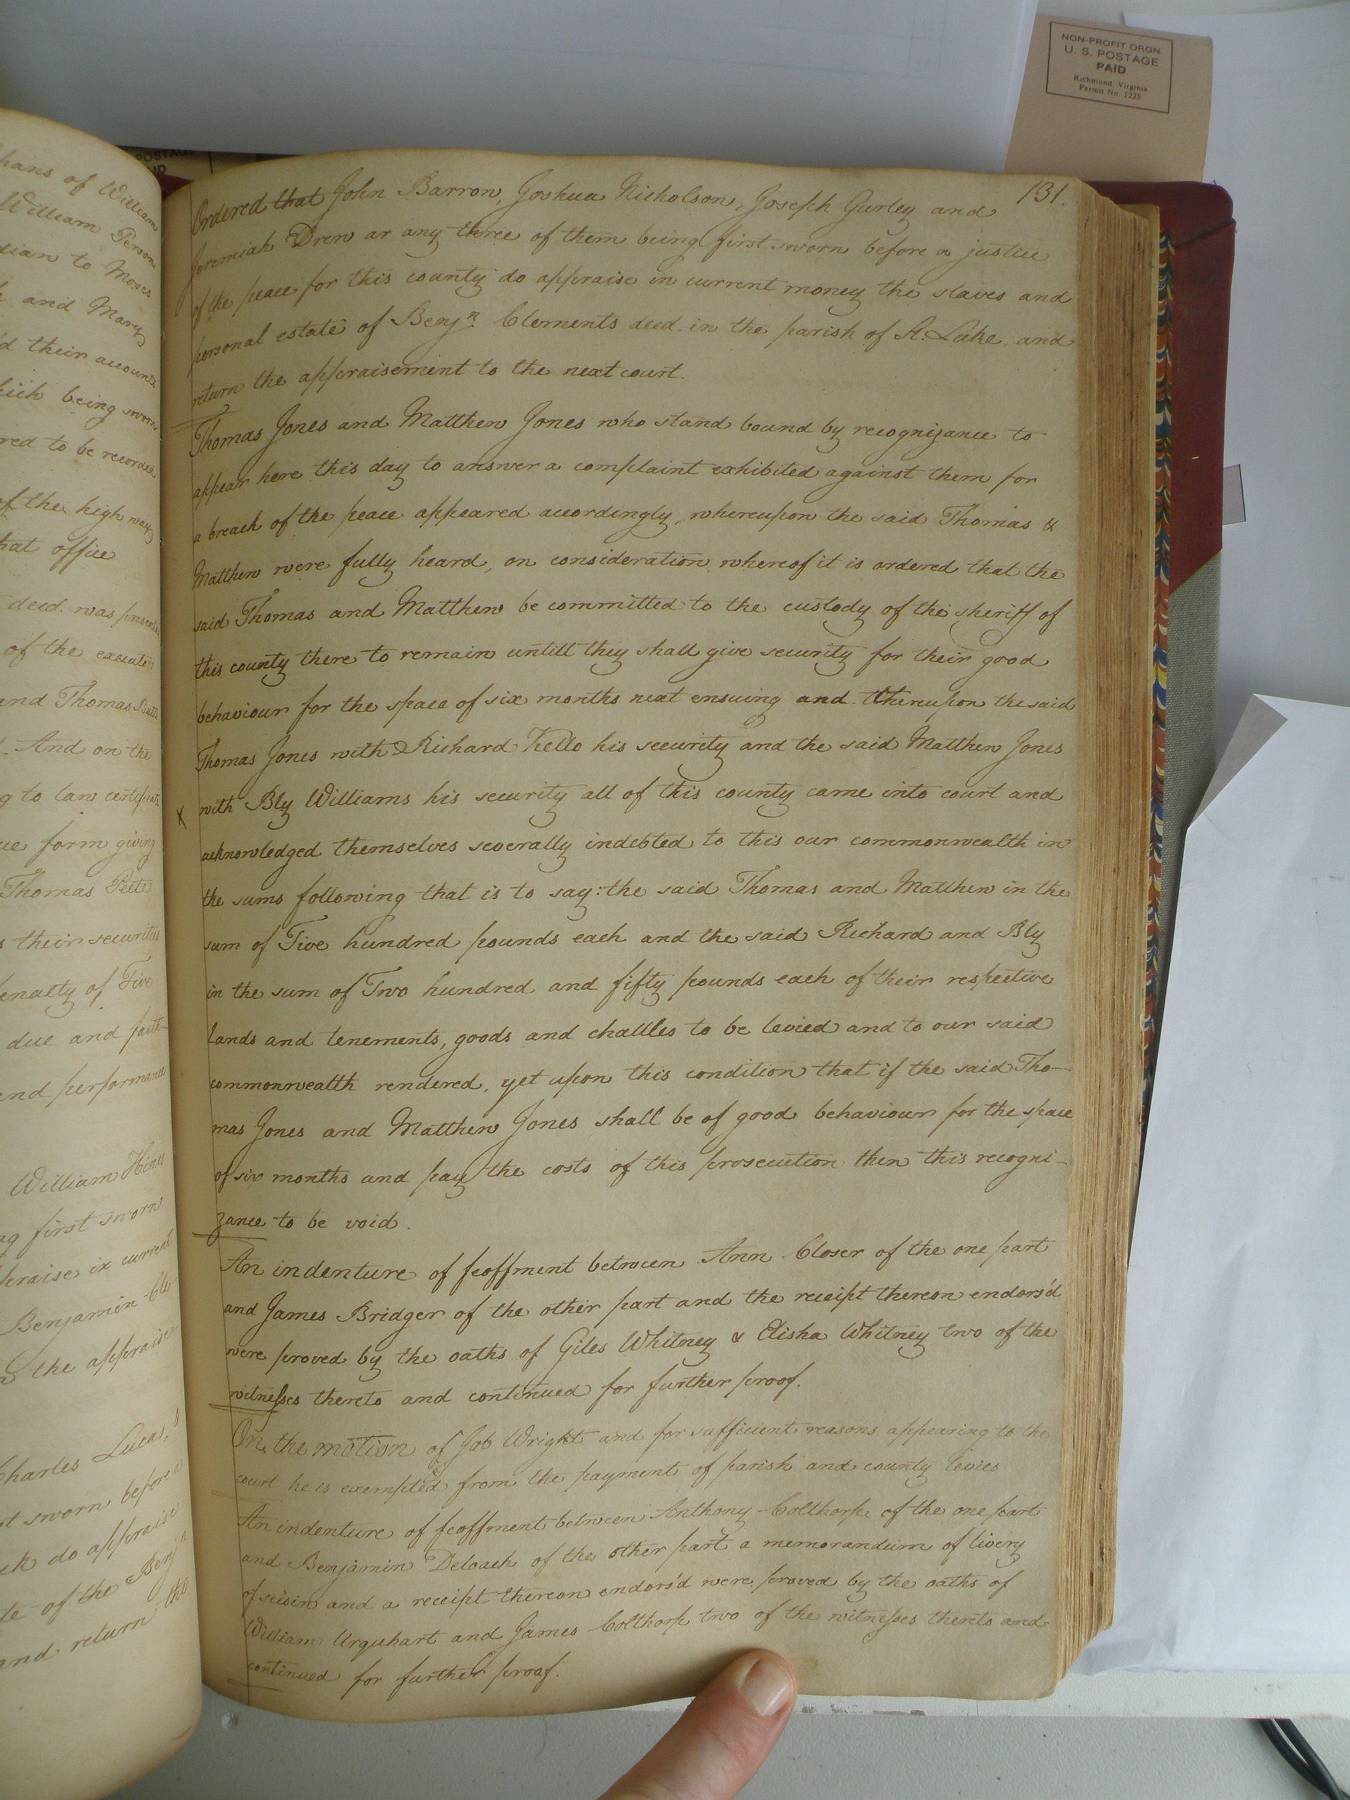 NON-PROFIT ORGN.
U. S. POSTAGE
PAID
Richmond, Virginia
Permit No. 1225
POSTAGE
131.
Ordered that John Barron, Joshua Nicholson, Joseph Gurley and
Jeremiah Drew or any three of them being first sworn before a justice
of the peace for this county do appraise in current money the slaves and
personal estate of Benjn. Clements decd. in the parish of St. Luke and
return the appraisement to the next court.
Thomas Jones and Matthew Jones who stand bound by recognizance to
appear here this day to answer a complaint exhibited against them for
a breach of the peace appeared accordingly, whereupon the said Thomas &
Matthew were fully heard, on consideration whereof it is ordered that the
said Thomas and Matthew be committed to the custody of the sheriff of
this county there to remain untill they shall give security for their good
behaviour for the space of six months next ensuing and thereupon the said
Thomas Jones with Richard Kello his security and the said Matthew Jones
x with Bly Williams his security all of this county came into court and
acknowledged themselves severally indebted to this our commonwealth in
the sums following that is to say: the said Thomas and Matthew in the
sum of Five hundred pounds each and the said Richard and Bly
in the sum of Two hundred and fifty pounds each of their respective
lands and tenements, goods and chattles to be levied and to our said
commonwealth rendered, yet upon this condition that if the said Tho-
mas Jones and Matthew Jones shall be of good behaviour for the space
of six months and pay the costs of this prosecution then this recogni-
zance to be void.
An indenture of feoffment between Ann Closer of the one part
and James Bridger of the other part and the receipt thereon endors'd
were proved by the oaths of Giles Whitney & Elisha Whitney two of the
witnesses thereto and continued for further proof.
On the motion of Job Wright and for sufficient reasons appearing to the
court he is exempted from the payment of parish and county levies
An indenture of feoffment between Anthony Colthorp of the one part
and Benjamin Deloach of the other part a memorandum of livery
of seisin and a receipt thereon endors'd were proved by the oaths of
William Urquhart and James Colthorp two of the witnesses thereto and
continued for further proof.
hans of William
William Person
dian to Moses
and Mary
'd their accounts
hich being sworn
red to be recorded
of the high way
hat office
decd. was presented
of the executors
and Thomas
And on the
g to law certificate
ue form giving
Thomas Peete
s their securities
enalty of Five
due and faith-
end performance
William Hines
ng first sworn
praise in current
Benjamin Cle
n the appraise
Charles Lucas,
st sworn before
ck do appraise
te of the Benjn
and return the